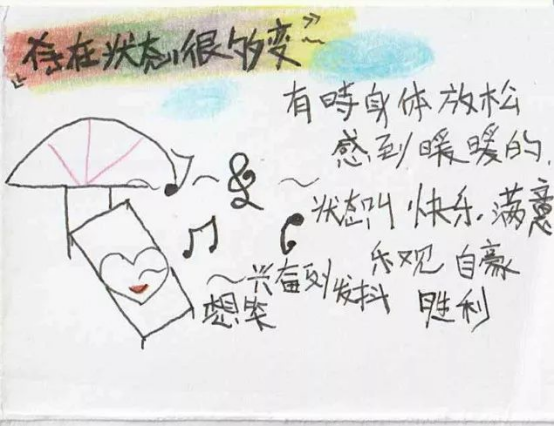 《存在状态很多变～》
有時身体放松
感到暖暖的，
状态叫快乐、满意
乐观 自豪
～兴奋到发抖 胜利
想笑